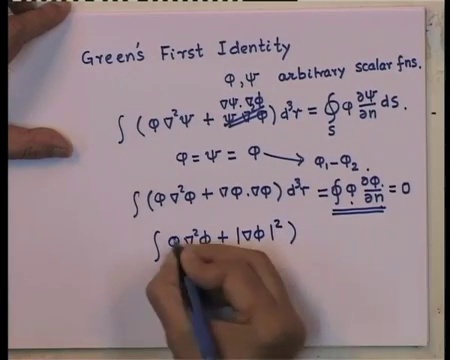 Green's First Identity
φ, ψ arbitrary scalar fns.
∇ψ·∇φ
∫ (φ∇²ψ + ψ·∇φ) d³r = ∮_S φ ∂ψ/∂n dS.
φ = ψ = φ → φ₁-φ₂.
∫ (φ∇²φ + ∇φ·∇φ) d³r = ∮ φ ∂φ/∂n = 0
∫ φ∇²φ + |∇φ|² )